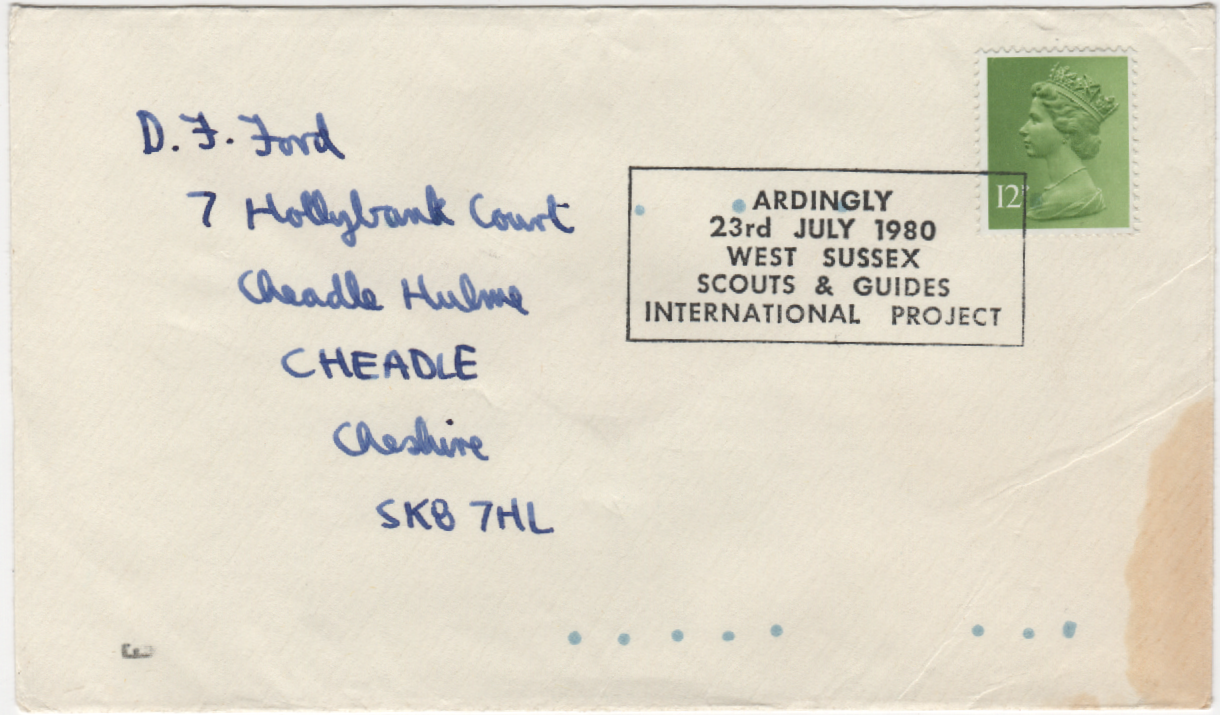 D. F. Ford
7 Hollybank Court
Cheadle Hulme
CHEADLE
Cheshire
SK8 7HL
12P
ARDINGLY
23rd JULY 1980
WEST SUSSEX
SCOUTS & GUIDES
INTERNATIONAL PROJECT